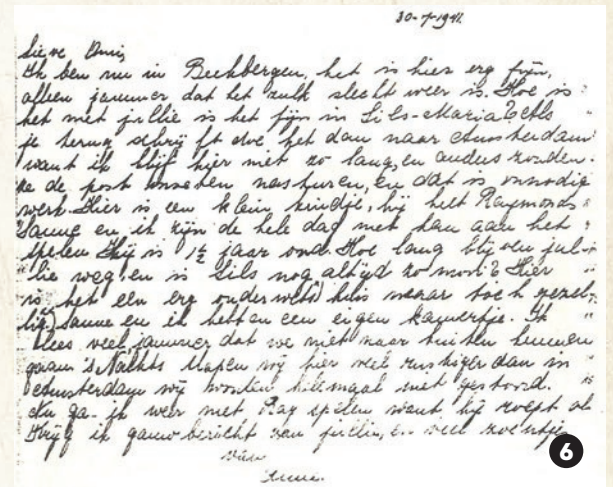 30-7-1941.
Lieve Omi,
Ik ben nu in Beekbergen, het is hier erg fijn,
alleen jammer dat het zulk slecht weer is. Hoe is
het met jullie is het fijn in Sils-Maria? Als
je terug schrijft doe het dan naar Amsterdam
want ik blijf hier niet zo lang, en anders zouden
ze de post moeten nasturen, en dat is onnodig
werk. Hier is een klein kindje, hij heet Raymond
Sanne en ik zijn de hele dag met hem aan het
spelen Hij is 1½ jaar oud. Hoe lang blijven jul-
lie weg, en is Sils nog altijd zo mooi? Hier
is het een erg ouderwets huis maar toch gezel-
lig, Sanne en ik hebben een eigen kamertje. Ik
lees veel jammer dat we niet naar buiten kunnen
gaan 's Nachts slapen wij hier veel rustiger dan in
Amsterdam wij worden helemaal niet gestoord.
nu ga ik weer met Ray spelen want hij roept al
Krijg ik gauw bericht van jullie, en veel zoentjes
van
Anne.
6